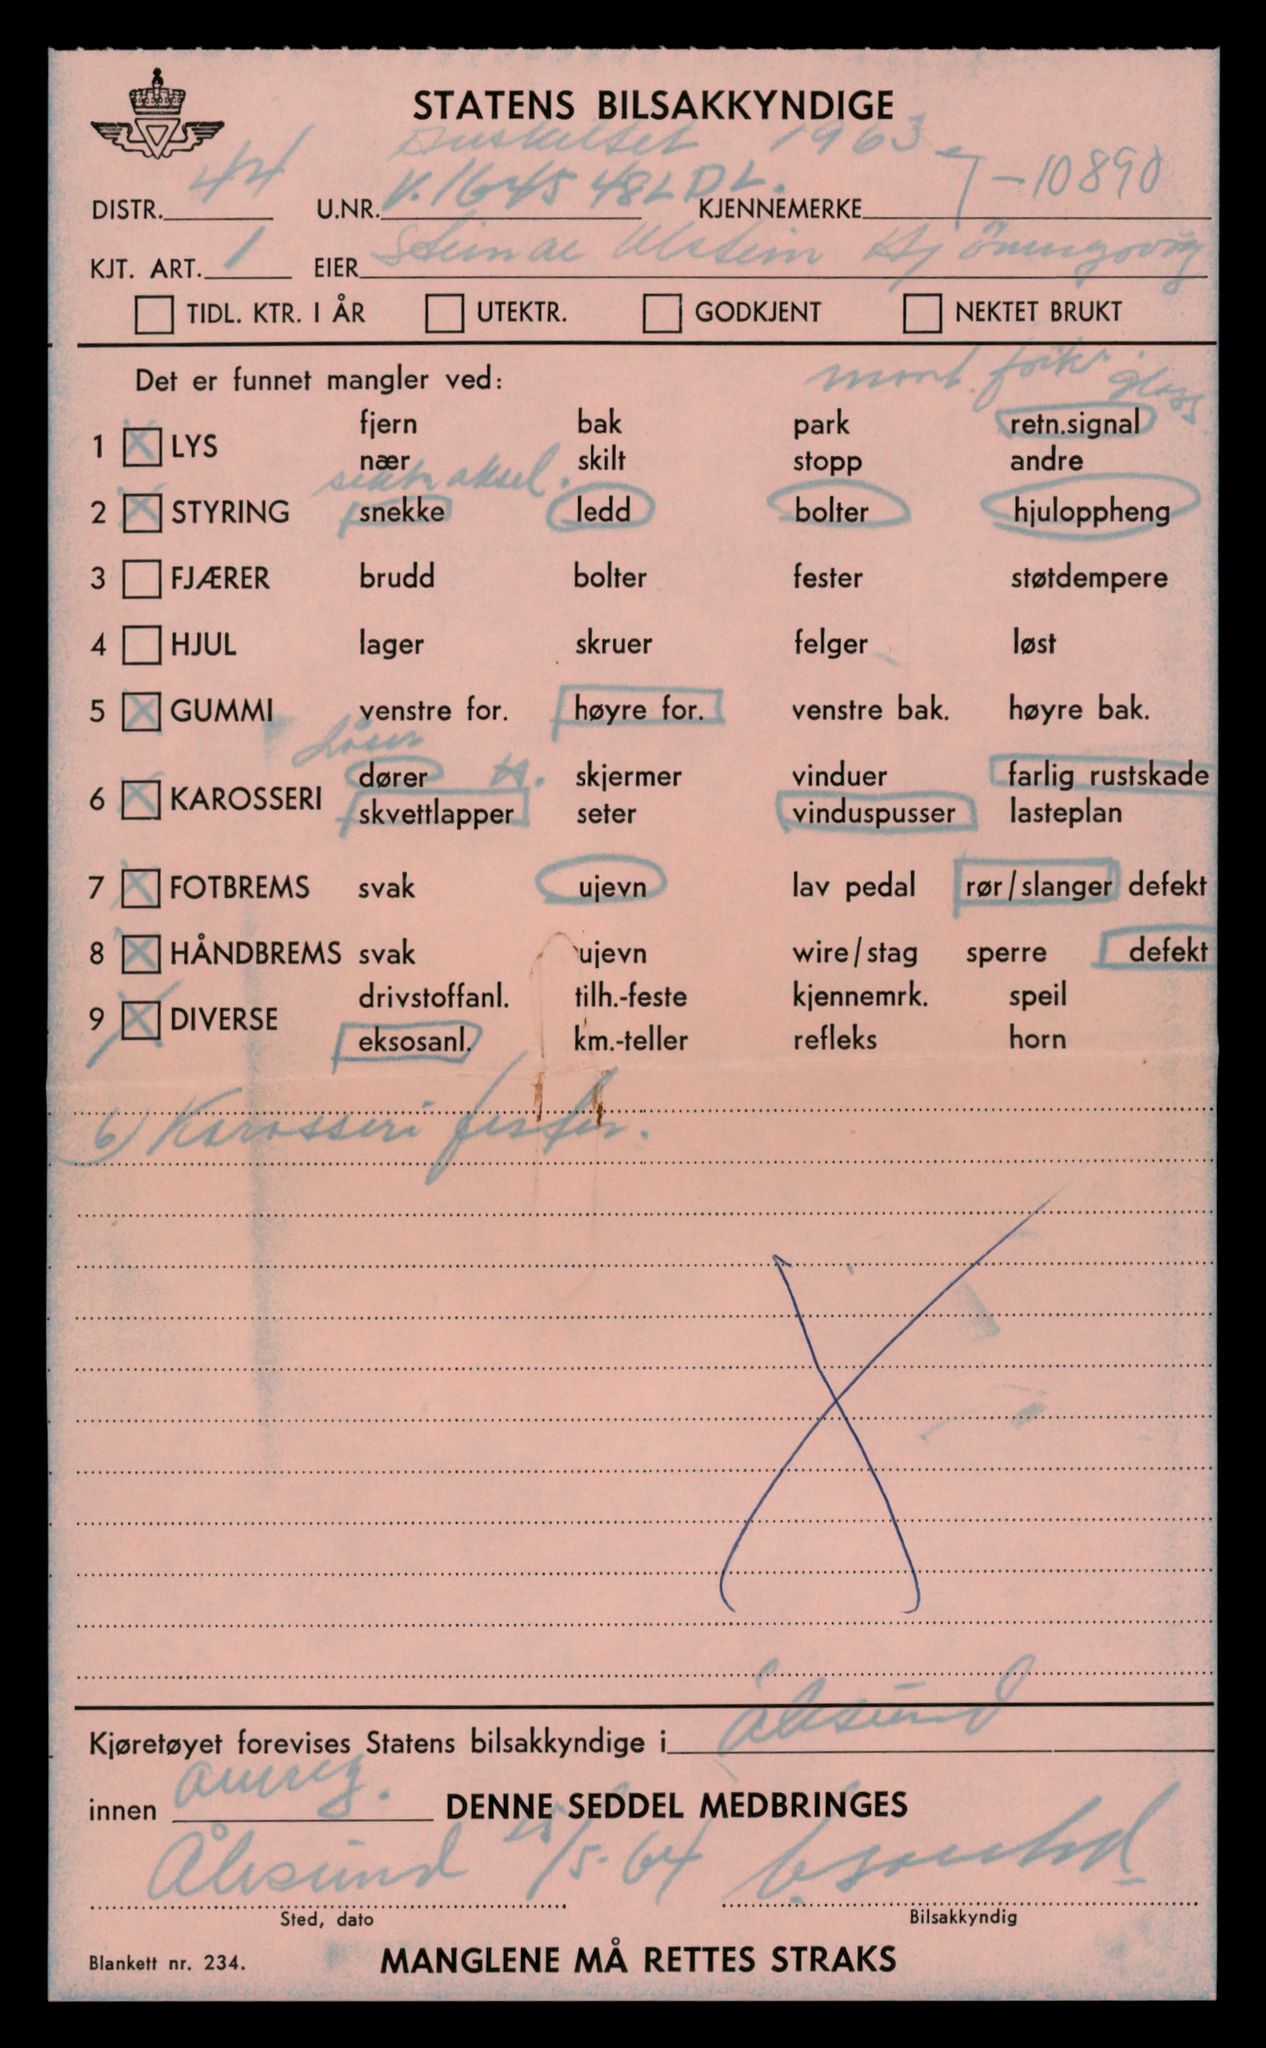 STATENS BILSAKKYNDIGE
1963
DISTR. 44 U.NR. V.1645 48L DL. KJENNEMERKE 7-10890
KJT. ART. 1 EIER Steinar Ulstein
TIDL. KTR. I ÅR UTEKTR. GODKJENT NEKTET BRUKT
Det er funnet mangler ved: glass
1 X LYS fjern bak park retn.signal
nær skilt stopp andre
aksel.
2 X STYRING snekke ledd bolter hjuloppheng
3 FJÆRER brudd bolter fester støtdempere
4 HJUL lager skruer felger løst
5 X GUMMI venstre for. høyre for. venstre bak. høyre bak.
Låser
6 X KAROSSERI dører H. skjermer vinduer farlig rustskade
skvettlapper seter vinduspusser lasteplan
7 X FOTBREMS svak ujevn lav pedal rør/slanger defekt
8 X HÅNDBREMS svak ujevn wire/stag sperre defekt
9 X DIVERSE drivstoffanl. tilh.-feste kjennemrk. speil
eksosanl. km.-teller refleks horn
6) Karosseri fester.
Kjøretøyet forevises Statens bilsakkyndige i Ålesund
innen omreg. DENNE SEDDEL MEDBRINGES
Ålesund 25/5-64
Sted, dato Bilsakkyndig
Blankett nr. 234. MANGLENE MÅ RETTES STRAKS